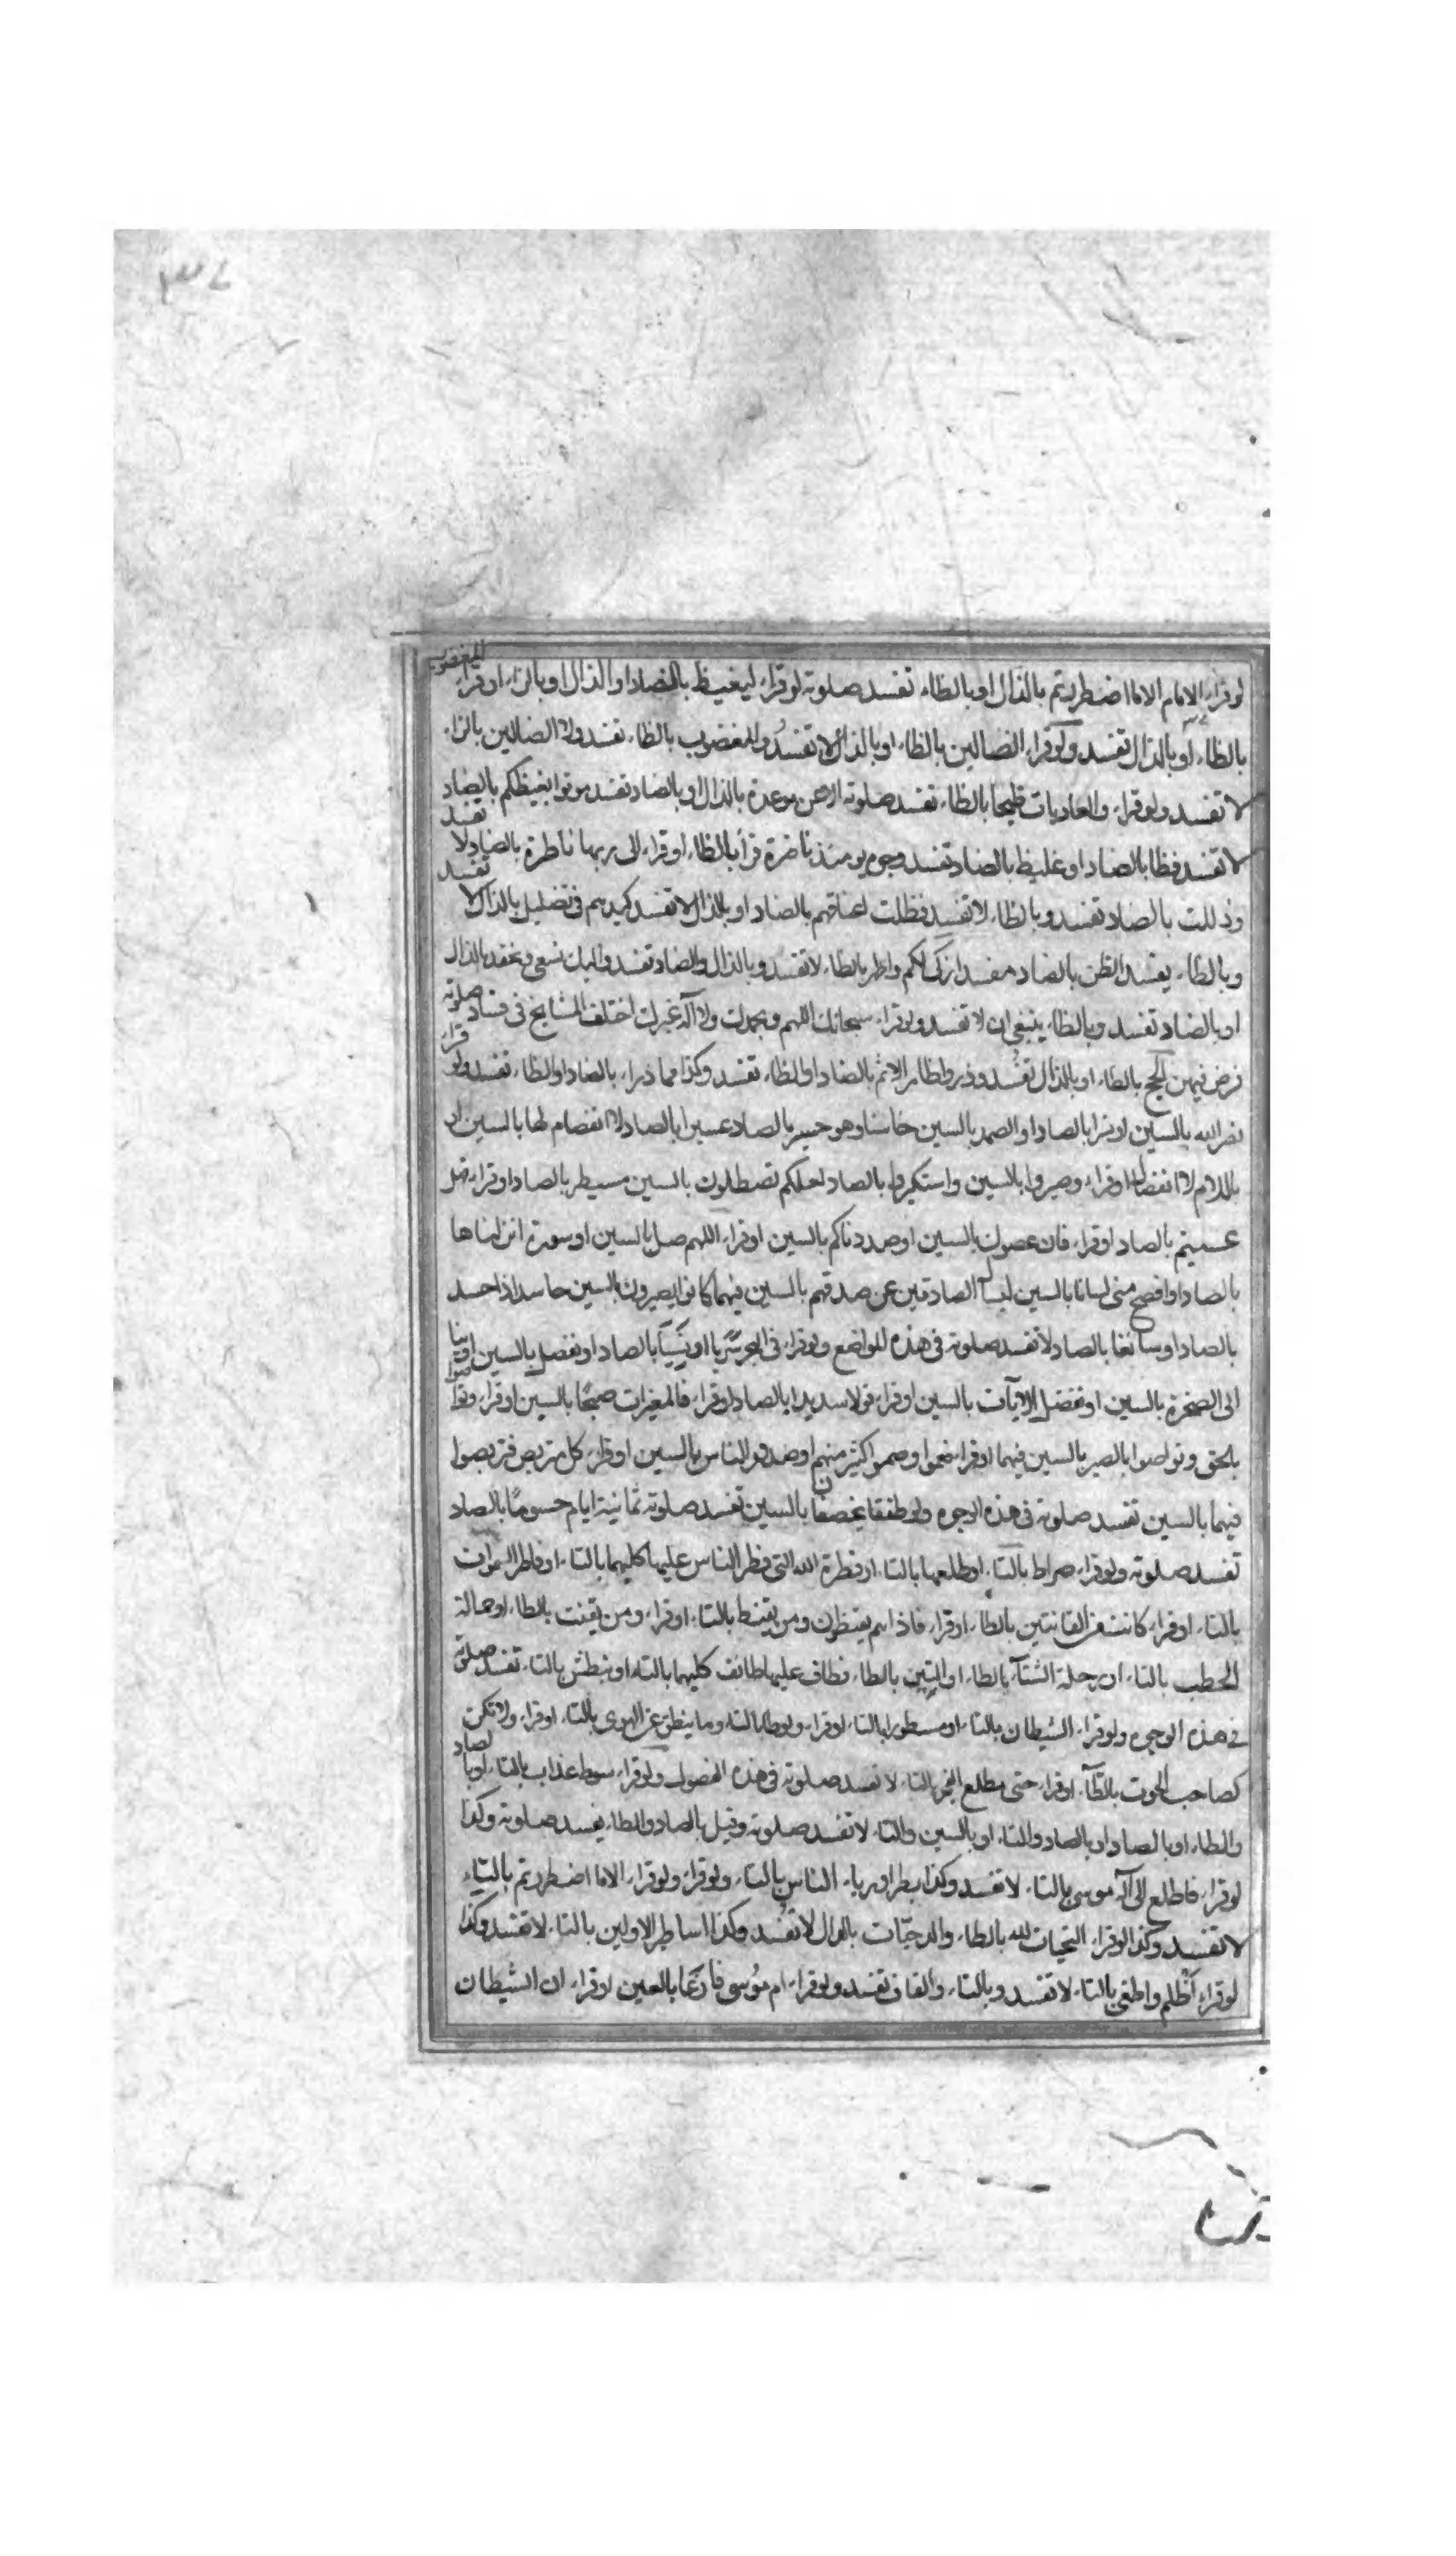 ٣٧
لو قراء الامام الاما اضطررتم بالذال او بالظاء تفسد صلوته لو قراء ليغيظ بالضاد او الذال او بالزاء او قراء المغضوب
بالظاء او بالذال تفسد ولو قراء الضالين بالظاء او بالذال لا تفسد والمغضوب بالظاء تفسد ولا الضالين بالزاء
لا تفسد ولو قراء والعاديات ظبحا بالظاء تفسد صلوته او عن موعدة بالذال او بالضاد تفسد موتوا بغيظكم بالضاد تفسد
لا تفسد فظا بالضاد او غليظ بالضاد تفسد وجوه يومئذ ناضرة قرأ بالظاء او قراء الى ربها ناظرة بالضاد لا تفسد
وذللت بالضاد تفسد وبالظاء لا تفسد فظلت اعناقهم بالضاد او بالذال لا تفسد كيدهم فى تضليل بالذال لا
وبالظاء يفسد الظن بالضاد مفسد ازكى لكم واطهر بالظاء لا تفسد وبالذال والضاد تفسد واليك نسعى ونحفد بالذال
او بالضاد تفسد وبالظاء ينبغى ان لا تفسد ولو قراء سبحانك اللهم وبحمدك ولا اله غيرك اختلف المشايخ فى فساد صلوته
فرض فيهن الحج بالظاء او بالذال تفسد وذروا ظاهر الاثم بالضاد او الظاء تفسد وكذا مما ذراء بالضاد او الظاء تفسد ولو قراء
نصر الله بالسين او نسرا بالصاد او الصمد بالسين خاسئا وهو حسير بالصاد عسيرا بالصاد لا انفصام لها بالسين او
باللام لا انفصال او قراء وصبروا بالسين واستكبروا بالصاد لعلكم تصطلون بالسين مسيطر بالصاد او قراء فهل
عسيتم بالصاد او قراء فان عصوك بالسين او صددناكم بالسين او قراء اللهم صل بالسين او سورة انزلناها
بالصاد او افصح منى لسانا بالسين ليسأل الصادقين عن صدقهم بالسين فيهما كانوا يصرون بالسين حاسد اذا حسد
بالصاد او سائغا بالصاد لا تفسد صلوته فى هذه المواضع ولو قراء فى البحر سربا او نسيا بالصاد او نفصل بالسين اوينا
الى الصخرة بالسين او نفصل الايات بالسين او قراء قولا سديدا بالصاد او قراء فالمغيرات صبحا بالسين او قراء وتواصوا
بالحق وتواصوا بالصبر بالسين فيهما او قراء فعموا وصموا كثير منهم او صدور الناس بالسين او قراء كل متربص فتربصوا
فيهما بالسين تفسد صلوته فى هذه الوجوه ولو طفقا يخصفان بالسين تفسد صلوته ثمانية ايام حسوما بالصاد
تفسد صلوته ولو قراء صراط بالتاء او طلعها بالتاء او فطرة الله التى فطر الناس عليها كليهما بالتاء او فاطر السموات
بالتاء او قراء كانت من القانتين بالطاء او قراء فاذا هم يقنطون ومن يقنط بالتاء او قراء ومن يقنت بالطاء او حمالة
الحطب بالتاء ان رحلة الشتاء بالطاء او التين بالطاء فطاف عليها طائف كليهما بالتاء او نبطش بالتاء تفسد صلوته
فى هذه الوجوه ولو قراء الشيطان بالتاء او مسطورا بالتاء لو قراء ولوطا بالتاء وما ينطق عن الهوى بالتاء او قراء ولا تكن
كصاحب الحوت بالطاء او قراء حتى مطلع الفجر بالتاء لا تفسد صلوته فى هذه الفصول ولو قراء سوط عذاب بالتاء او بالصاد
والطاء او بالصاد او بالصاد والتاء او بالسين والتاء لا تفسد صلوته وقيل بالصاد والطاء يفسد صلوته وكذا
لو قراء فاطلع الى اله موسى بالتاء لا تفسد وكذا بطرا ورياء الناس بالتاء ولو قراء ولو قراء الاما اضطررتم بالتاء
لا تفسد وكذا لو قراء التحيات لله بالطاء والدحيّات بالدال لا تفسد وكذا اساطير الاولين بالتاء لا تفسد وكذا
لو قراء اظلم واطغى بالتاء لا تفسد وبالتاء والقاف تفسد ولو قراء ام موسى فارغا بالعين او قراء ان الشيطان